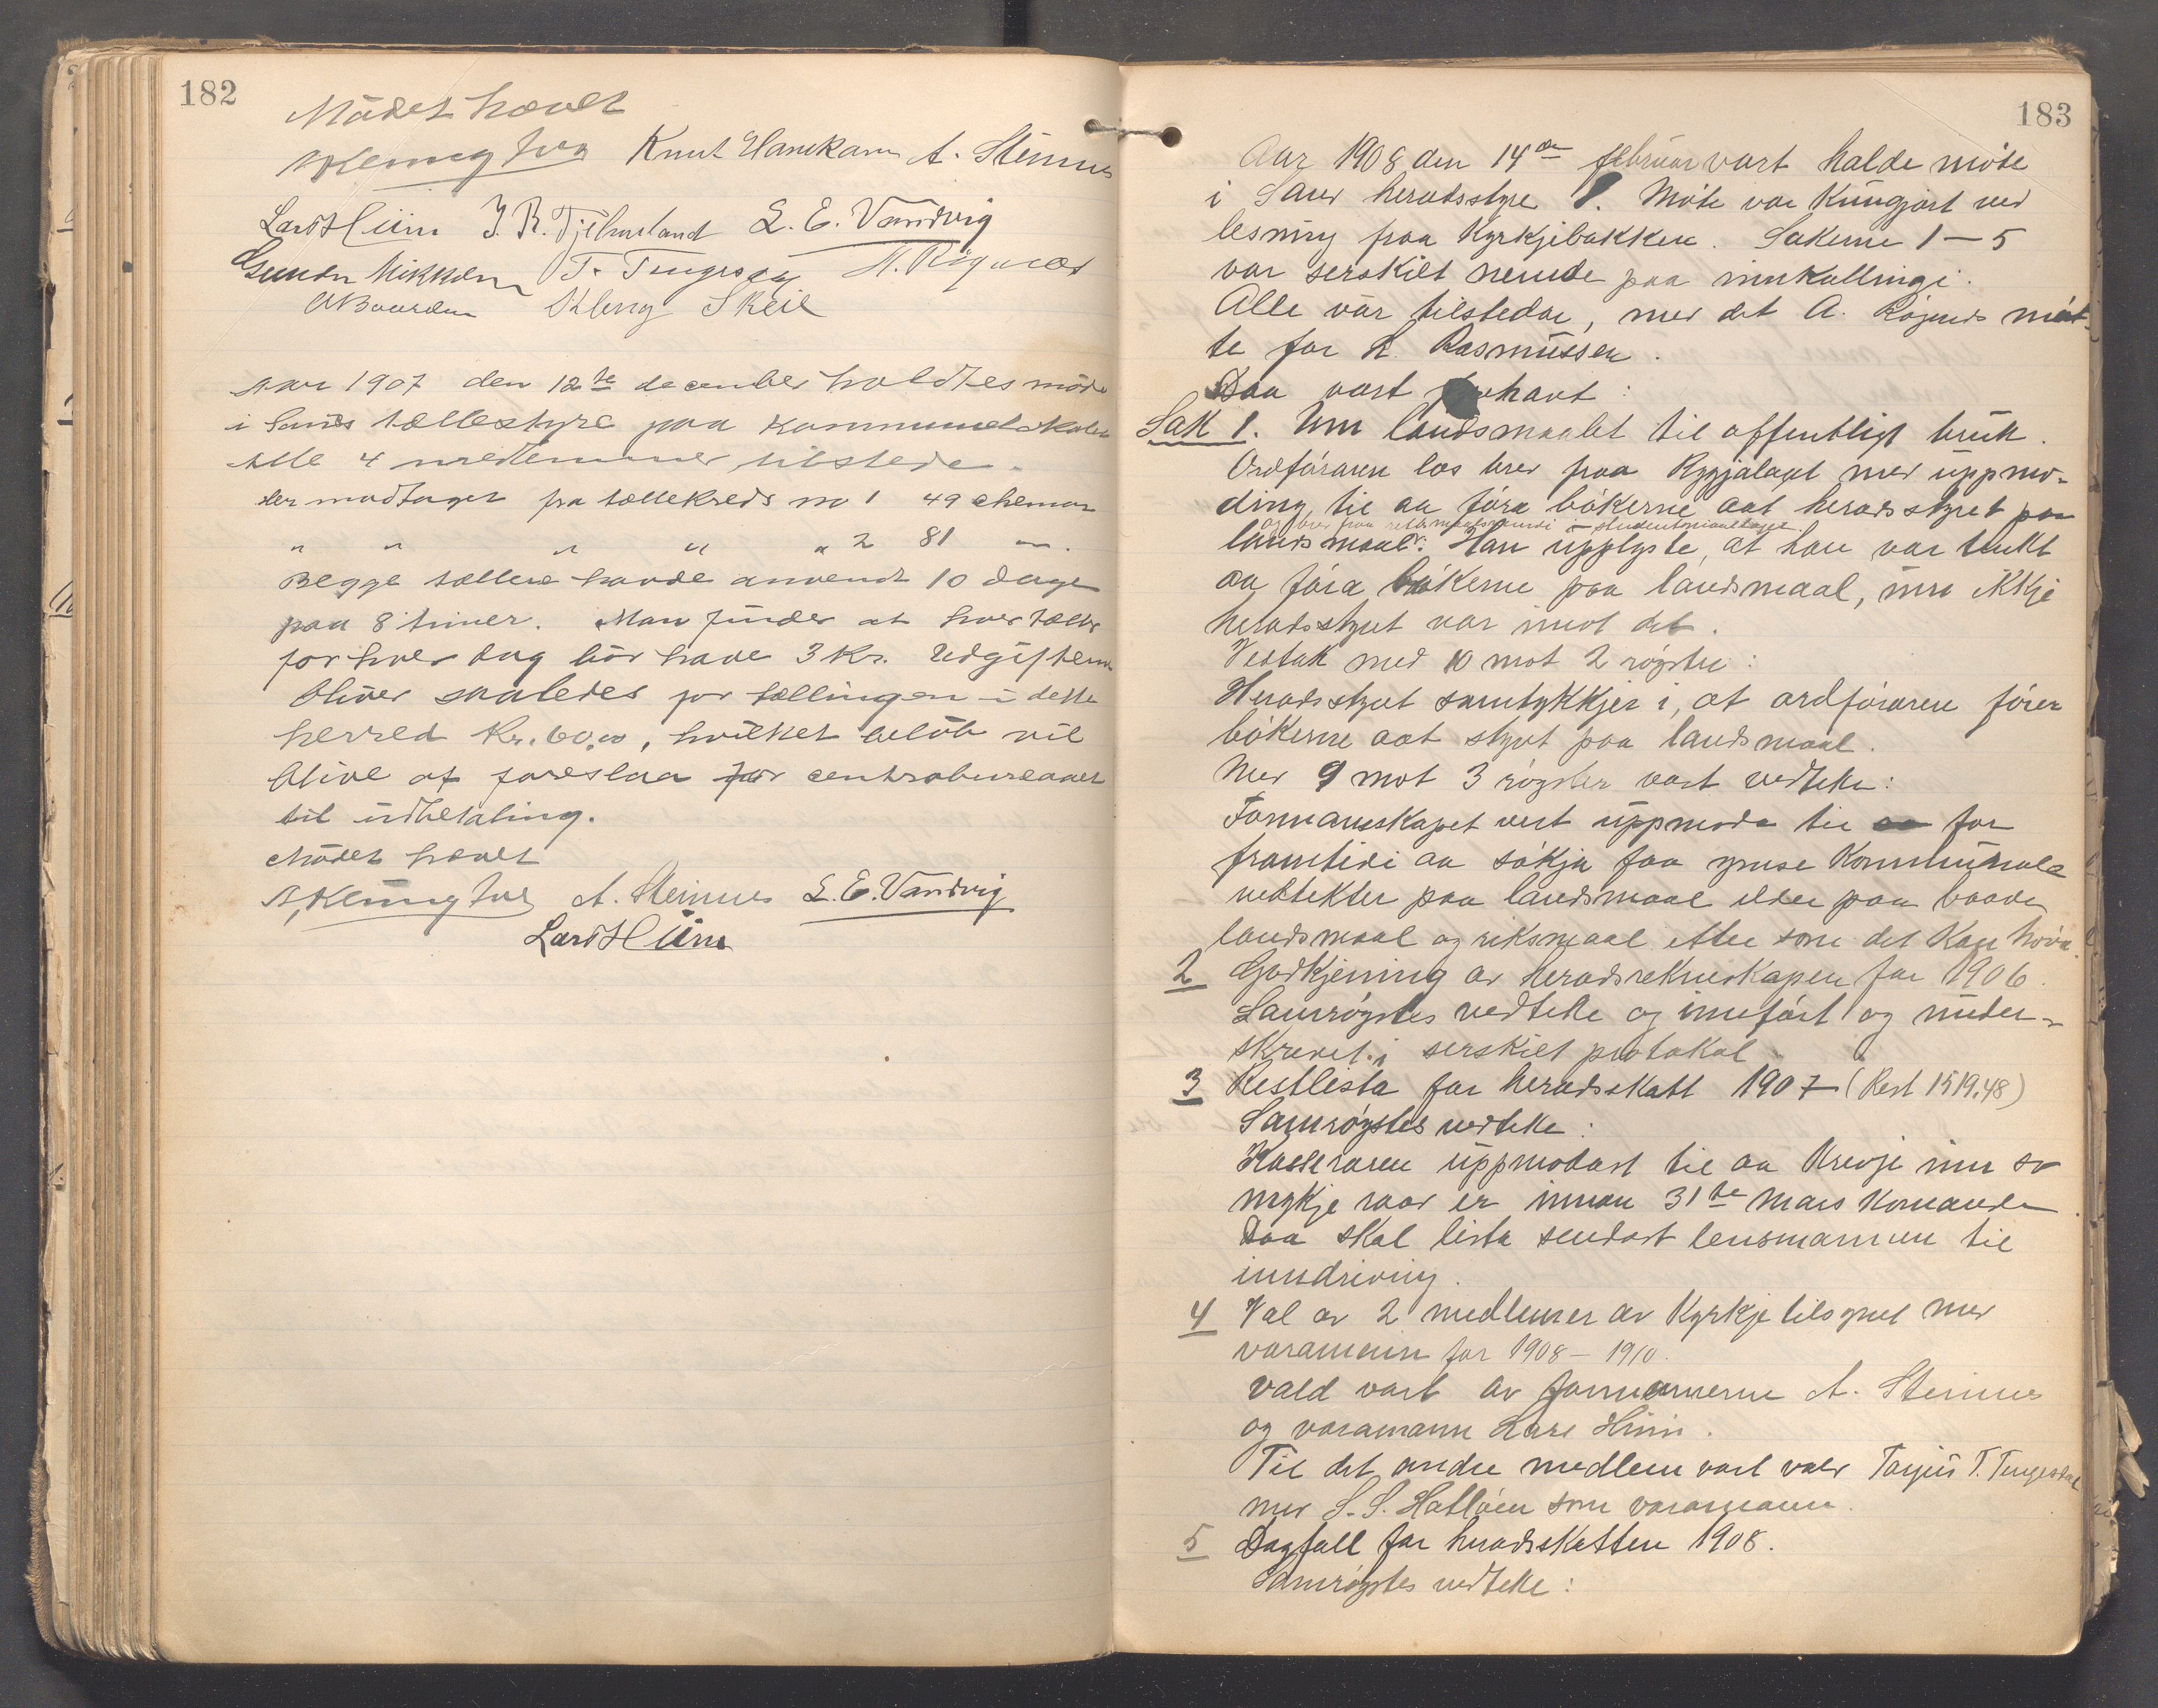 182
Mødet hævet
Knut Hanekam A. Steinnes
Lars Hiim J. R. Tjelmeland L. E. Vandvig
Gunder Mikkelsen T. Tengesdal A. Røgnæs
Kleng Skeie
Aar 1907 den 12te december holdtes møde
i Sands tællestyre paa kommunelokalet
Alle 4 medlemmer tilstede.
Der modtaget fra tællekreds no 1 49 skemar
" " " " " 2 81 "
Begge tællere havde anvendt 10 dage
paa 8 timer. Man finder at hver tæller
for hver dag bør have 3 Kr. Udgifterne
bliver saaledes for tællingen i dette
herred Kr. 60,00, hvilket beløb vil
blive at foreslaa for centrabureauet
til udbetaling.
Mødet hævet
A. Steinnes L. E. Vandvig
Lars Hiim
183
Aar 1908 den 14de februar vart halde møte
i Sand heradsstyre. Møte var kungjort ved
lesning fraa kyrkjebakken. Sakerne 1–5
var serskilt nemde paa innkallingi.
Alle var tilstedar, med det A. Røgnes møt-
te for L. Rasmussen.
Daa vart forhavt:
Sak 1. Um landsmaalet til offentligt bruk.
Ordføraren las brev fraa Rygjalaget med uppmo-
ding til aa føra bøkerne aat heradsstyret paa
og brev fraa studentmaallaget
landsmaal. Han upplyste, at han var tenkt
aa føra bøkerne paa landsmaal, um ikkje
heradsstyret var imot det.
Vedtak med 10 mot 2 røyster:
Heradsstyret samtykkjer i, at ordføraren fører
bøkerne aat styret paa landsmaal.
Med 9 mot 3 røyster vart vedteke:
Formannskapet vert uppmoda til aa for
framtidi aa søkja faa ymse kommunale
vedtekter paa landsmaal elder paa baade
landsmaal og riksmaal etter som det kan høva.
2 Godkjening av heradsrekneskapen for 1906.
Samrøystes vedteke og innført og under-
skrevet i serskilt protokol
3 Restlista for heradsskatt 1907 (Rest 1519.48)
Samrøystes vedteke:
Kasseraren uppmodast til aa krevje inn so
mykje raad er innan 31te mars komande
Daa skal lista sendast lensmannen til
inndriving.
4 Val av 2 medlemer av kyrkjetilsynet med
varamenn for 1908–1910.
Vald vart av formennerne A. Steinnes
og varamann Lars Hiim.
Til det andre medlem vart vald Tarjei T. Tengesdal
med S. S. Hatløen som varamann.
5 Dagfall for heradsskatten 1908.
Samrøystes vedteke: